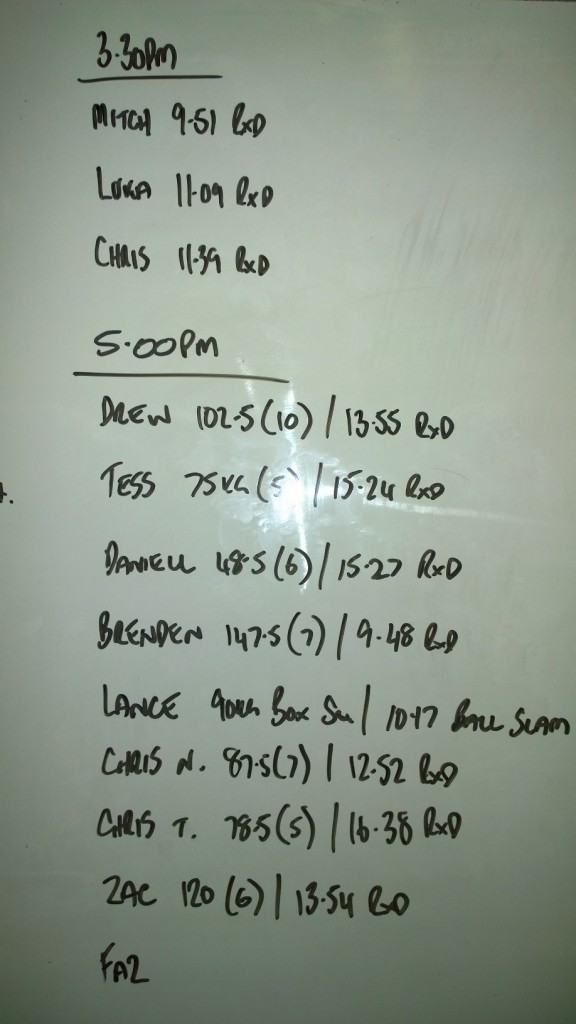 3.30pm
MITCH 9.51 RxD
LUKA 11.09 RxD
CHRIS 11.39 RxD
5.00PM
DREW 102.5 (10) / 13.55 RxD
TESS 75KG (5) / 15.24 RxD
DANIELL 48.5 (6) / 15.27 RxD
BRENDEN 147.5 (7) / 9.48 RxD
LANCE 90KG BOX / 10.17 BALL SLAM
CHRIS N. 87.5 (7) / 12.52 RxD
CHRIS T. 78.5 (5) / 16.38 RxD
ZAC 120 (6) / 13.54 RxD
FAZ